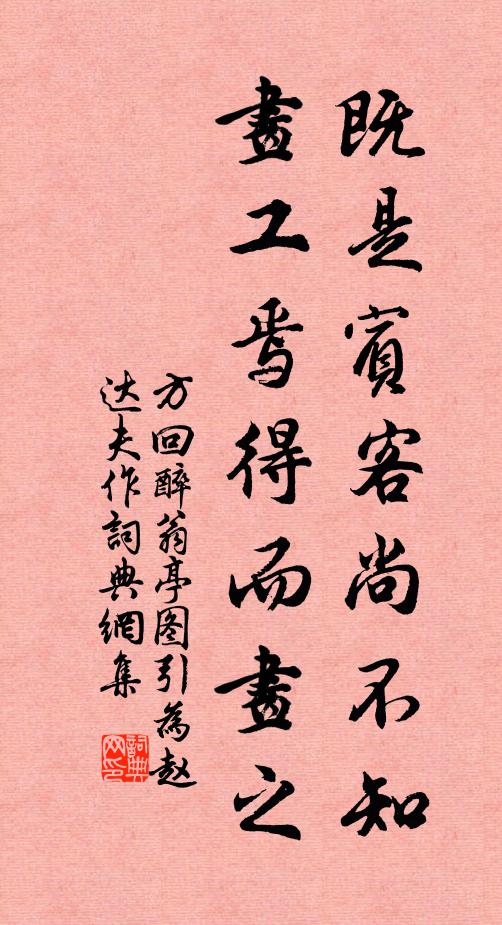 既是賓客尚不知
畫工焉得而畫之
方回醉翁亭图引為赵
达夫作詞典網集
詞典
网印